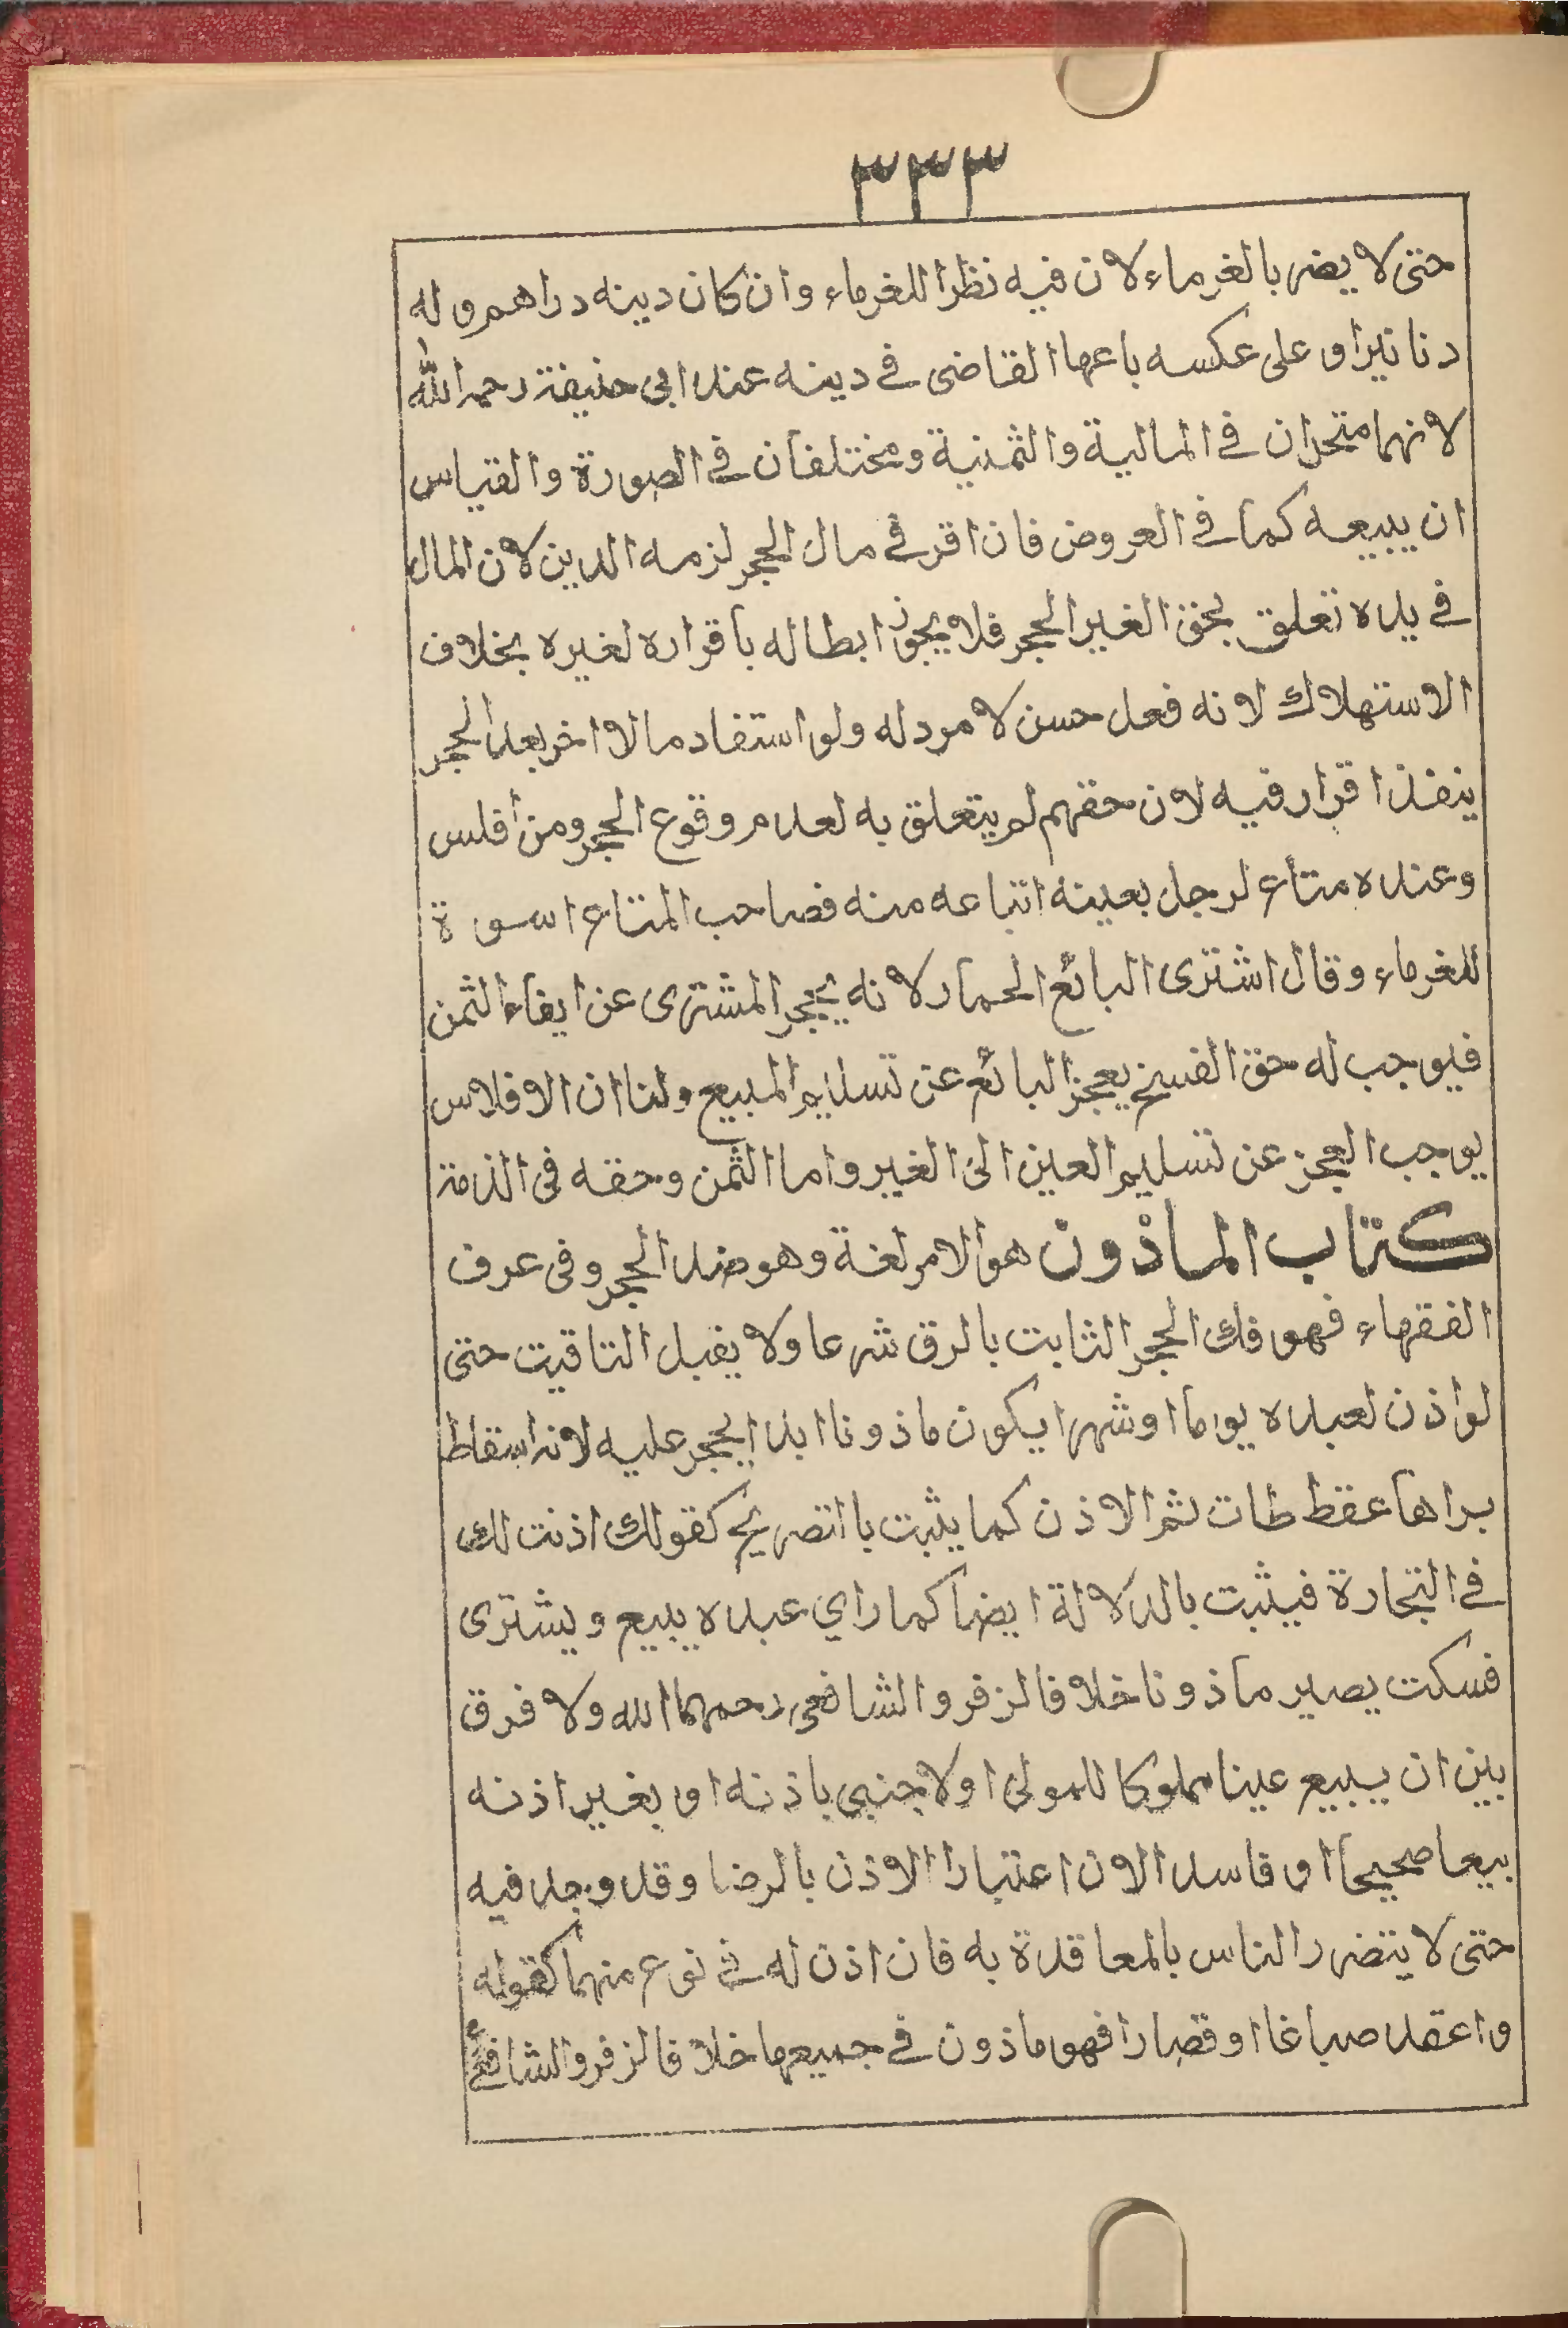 ٣٣٣
حتى لا يضر بالغرماء لان فيه نظرا للغرماء وان كان دينه دراهم وله
دنانيرا و على عكسه باعها القاضى فى دينه عند ابى حنيفة رحمه الله
لانهما متحدان فى المالية والثمنية ومختلفان فى الصورة والقياس
ان يبيعه كما فى العروض فان اقر فى مال الحجر لزمه الدين لان المال
فى يده تعلق بحق الغير الحجر فلا يجوز ابطاله باقراره لغيره بخلاف
الاستهلاك لانه فعل حسن لا مرد له ولو استفاد مالا اخر بعد الحجر
ينفذ اقرار فيه لان حقهم لم يتعلق به لعدم وقوع الحجر ومن افلس
وعنده متاع لرجل بعينه اتباعه منه فصاحب المتاع اسوة
للغرماء وقال اشترى البائع الحمار لانه يحجر المشترى عن ايفاء الثمن
فيوجب له حق الفسخ يعجز البائع عن تسليم المبيع ولنا ان الافلاس
يوجب العجز عن تسليم العين الى الغير واما الثمن وحقه فى الذمة
كتاب الماذون هو الامر لغة وهو ضد الحجر وفى عرف
الفقهاء فهو فك الحجر الثابت بالرق شرعا ولا يقبل التاقيت حتى
لو اذن لعبده يوما او شهرا يكون ماذونا ابدا يحجر عليه لانه اسقاط
براها عقط طات ثم الاذن كما يثبت با اتصريح كقولك اذنت لك
فى التجارة فيثبت بالدلالة ايضا كما راي عبده يبيع ويشترى
فسكت يصير ماذونا خلافا لزفر والشافعى رحمهما الله ولا فرق
بين ان يبيع عينا مملوكا للمولى او لاجنبى باذنه او بغير اذنه
بيعا صحيحا او فاسدا لان اعتبارا الاذن بالرضا وقد وجد فيه
حتى لا يتضرر الناس بالمعاقدة به فان اذن له فى نوع منهما كقوله
واعقد صباغا او قصارا فهو ماذون فى جميعها خلافا لزفر والشافعى